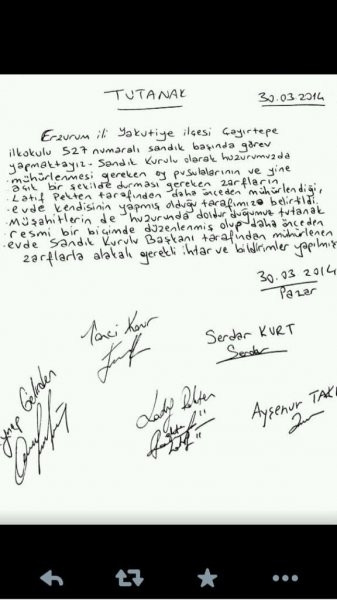 TUTANAK
30.03.2014
Erzurum ili Yakutiye ilçesi Çayırtepe
ilkokulu 527 numaralı sandık başında görev
yapmaktayız. Sandık Kurulu olarak huzurumuzda
mühürlenmesi gereken oy pusulalarının ve yine
açık bir şekilde durması gereken zarfların
Latif Pekten tarafından daha önceden mühürlendiği,
evde kendisinin yapmış olduğu tarafımıza belirtildi.
Müşahitlerin de huzurunda doldurduğumuz tutanak
resmi bir biçimde düzenlenmiş olup daha önceden
evde Sandık Kurulu Başkanı tarafından mühürlenen
zarflarla alakalı gerekli ihtar ve bildirimler yapılmış
30.03.2014
Pazar
Serdar KURT
Serdar
Ayşenur TAK